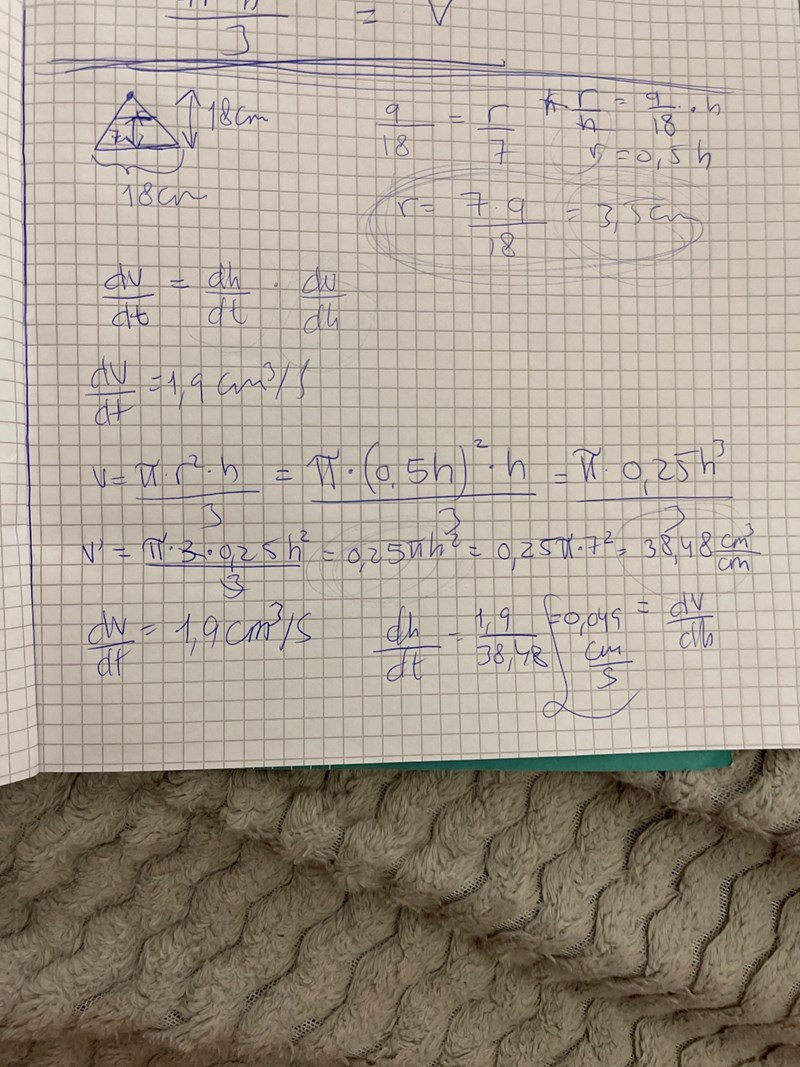 3 = V
18cm
7
18cm
9/18 = r/7
r/h = 9/18 · h
r = 0,5h
r = 7·9/18 = 3,5cm
dV/dt = dh/dt · dV/dh
dV/dt = 1,9 cm³/s
V = π·r²·h/3 = π·(0,5h)²·h/3 = π·0,25h³/3
V' = π·3·0,25h²/3 = 0,25πh² = 0,25π·7² = 38,48 cm³/cm
dV/dt = 1,9cm³/s dh/dt = 1,9/38,48 = 0,049 cm/s = dV/dh